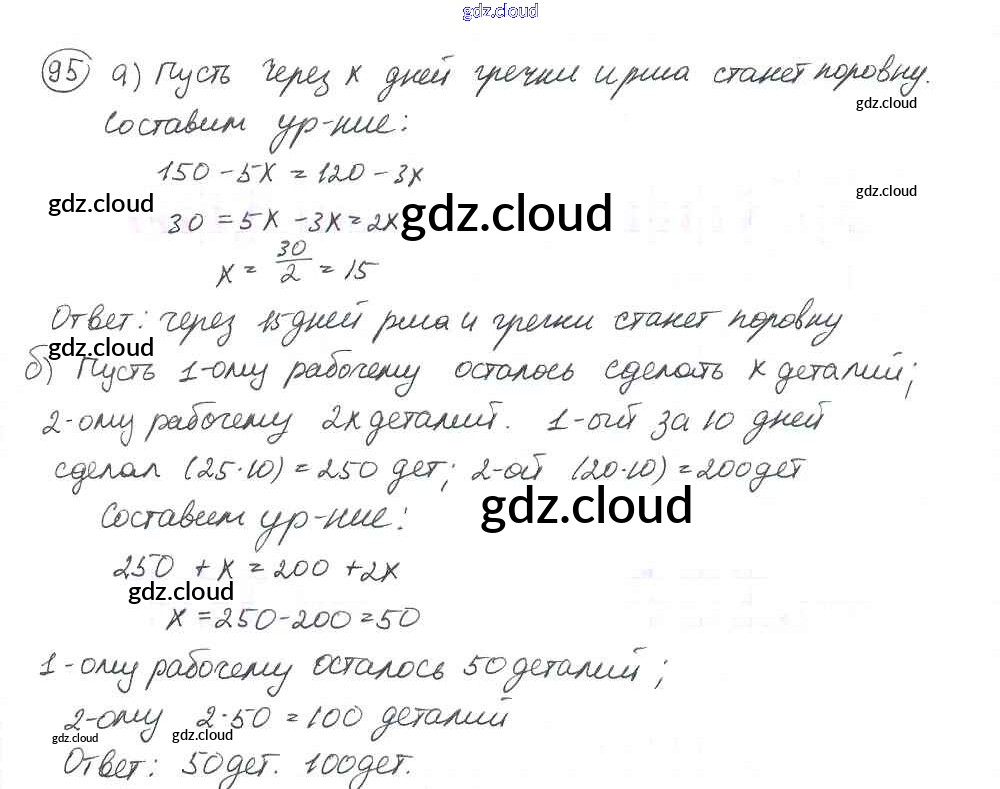 gdz.cloud
95 а) Пусть через x дней гречки и риса станет поровну.
gdz.cloud
Составим ур-ние:
150 - 5x = 120 - 3x
gdz.cloud
gdz.cloud
30 = 5x - 3x = 2x
gdz.cloud
x = 30/2 = 15
Ответ: через 15 дней риса и гречки станет поровну
gdz.cloud
б) Пусть 1-ому рабочему осталось сделать x деталий;
2-ому рабочему 2x деталий. 1-ый за 10 дней
сделал (25·10) = 250 дет; 2-ой (20·10) = 200 дет
gdz.cloud
Составим ур-ние:
250 + x = 200 + 2x
gdz.cloud
x = 250 - 200 = 50
1-ому рабочему осталось 50 деталий;
2-ому 2·50 = 100 деталий
gdz.cloud
gdz.cloud
Ответ: 50 дет. 100 дет.